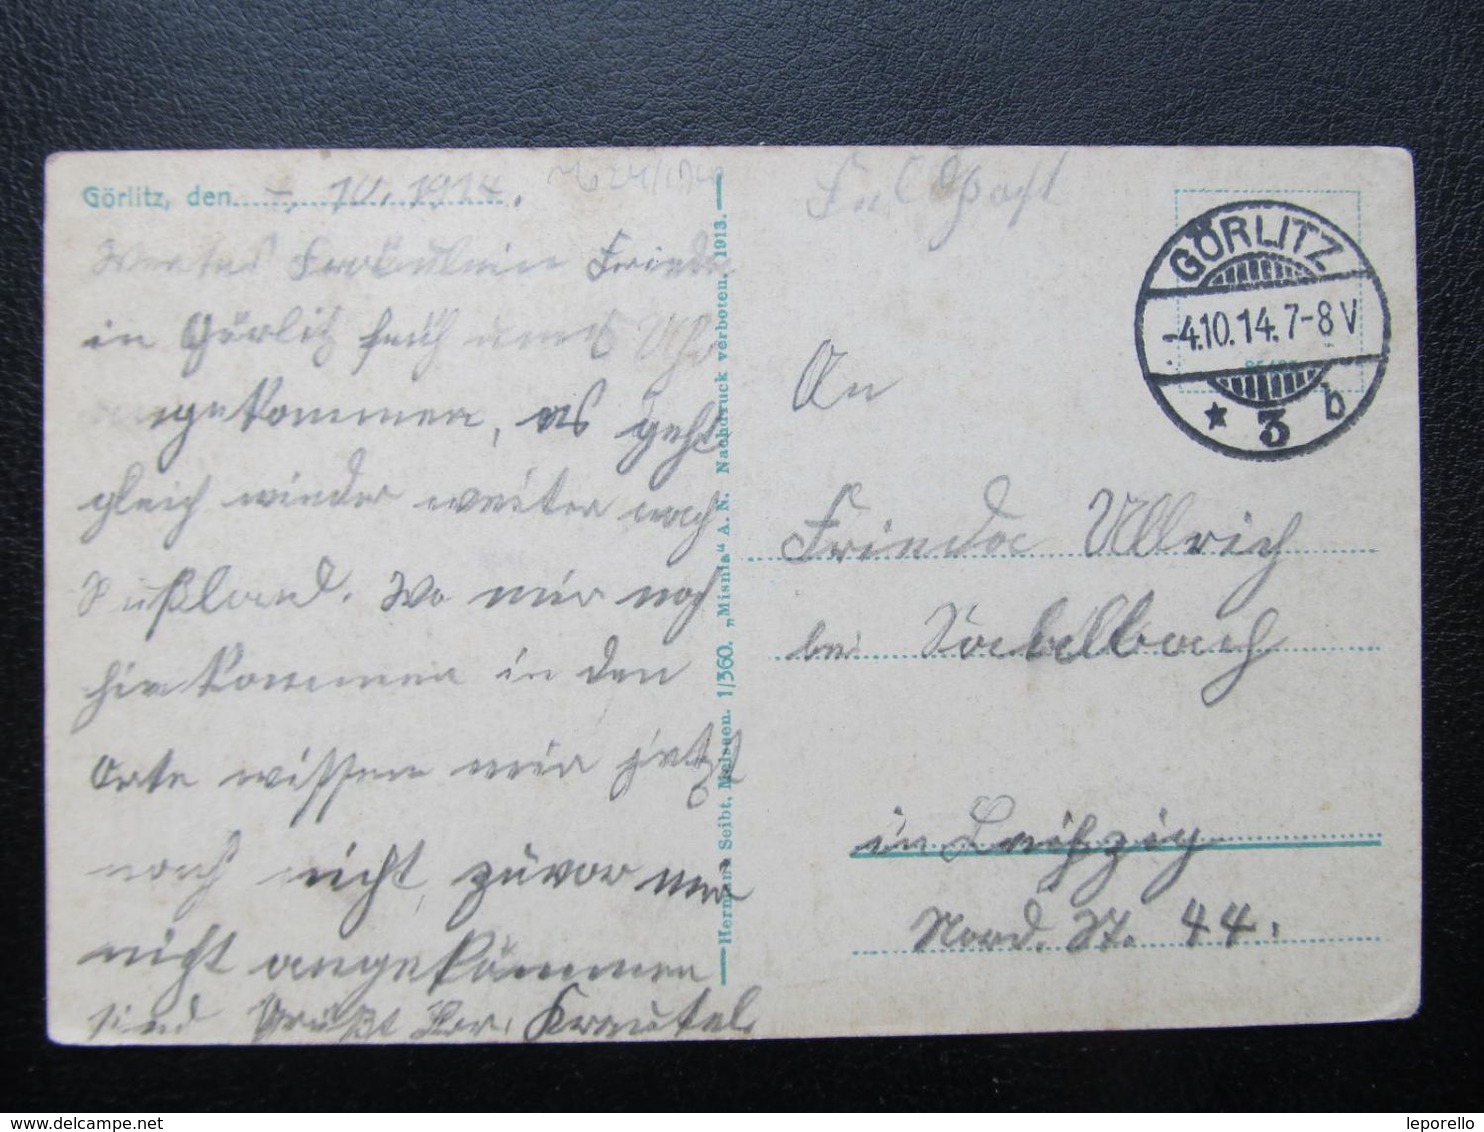 Görlitz, den 10.1914.
Wertes Fräulein Frieda
in Görlitz früh Uhr
angekommen, es geht
gleich wieder weiter nach
Rußland. Wo wir noch
hin kommen in den
Orte wissen wir jetzt
noch nicht, zuvor wir
nicht angekommen
sind Grüßt Krautel
Hermann Seibt, Meissen. 1/360. „Misnia“ A. N. Nachdruck verboten. 1913.
Feldpost
GÖRLITZ
-4.10.14.7-8V
* 3 b
An
Frieda Ullrich
bei
in Leipzig
Nord. St. 44.
delcampe.net
leporello